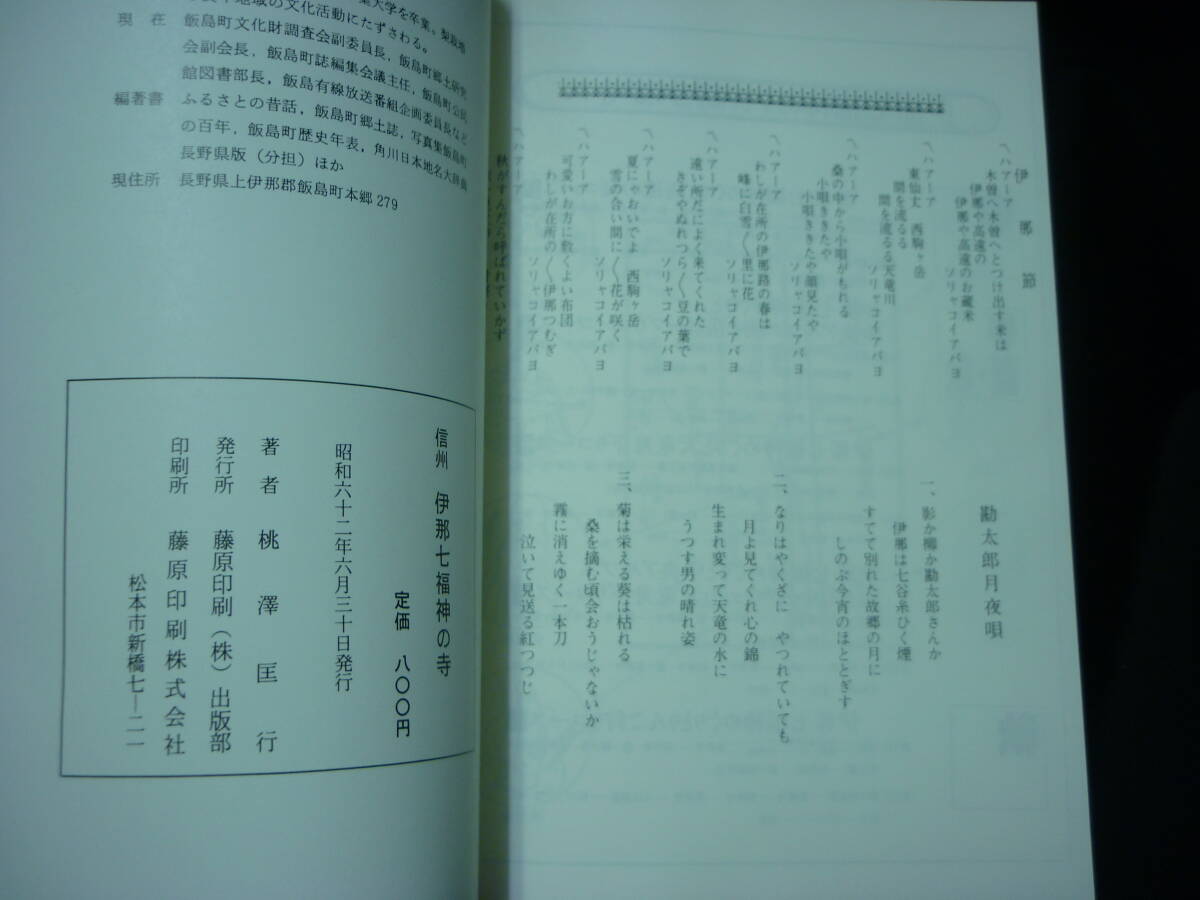 大学を卒業。
地域の文化活動にたずさわる。
現 在 飯島町文化財調査会副委員長，飯島町郷土研究
会副会長，飯島町誌編集会議主任，飯島町公民
館図書部長，飯島有線放送番組企画委員長など
編著書 ふるさとの昔話，飯島町郷土誌，写真集飯島町
の百年，飯島町歴史年表，角川日本地名大辞典
長野県版（分担）ほか
現住所 長野県上伊那郡飯島町本郷279
信州 伊那七福神の寺
定価 八〇〇円
昭和六十二年六月三十日発行
著者 桃澤匡行
発行所 藤原印刷（株）出版部
印刷所 藤原印刷株式会社
松本市新橋七―二一
伊那節
〽ハアーア
木曽へ木曽へとつけ出す米は
伊那や高遠の
伊那や高遠のお蔵米
ソリャコイアバヨ
〽ハアーア
東仙丈 西駒ヶ岳
間を流るる
間を流るる天竜川
ソリャコイアバヨ
〽ハアーア
桑の中から小唄がもれる
小唄ききたや
小唄ききたや顔見たや
ソリャコイアバヨ
〽ハアーア
わしが在所の伊那路の春は
峰に白雪〳〵里に花
ソリャコイアバヨ
〽ハアーア
遠い所だによく来てくれた
きぞやぬれつら〳〵豆の葉で
ソリャコイアバヨ
〽ハアーア
夏にゃおいでよ 西駒ヶ岳
雪の合い間に〳〵花が咲く
ソリャコイアバヨ
〽ハアーア
可愛いお方に敷くよい布団
わしが在所の〳〵伊那つむぎ
ソリャコイアバヨ
〽ハアーア
秋がすんだら呼ばれていかず
勘太郎月夜唄
一、影か柳か勘太郎さんか
伊那は七谷糸ひく煙
すてて別れた故郷の月に
しのぶ今宵のほととぎす
二、なりはやくざに やつれていても
月よ見てくれ心の錦
生まれ変って天竜の水に
うつす男の晴れ姿
三、菊は栄える葵は枯れる
桑を摘む頃会おうじゃないか
霧に消えゆく一本刀
泣いて見送る紅つつじ